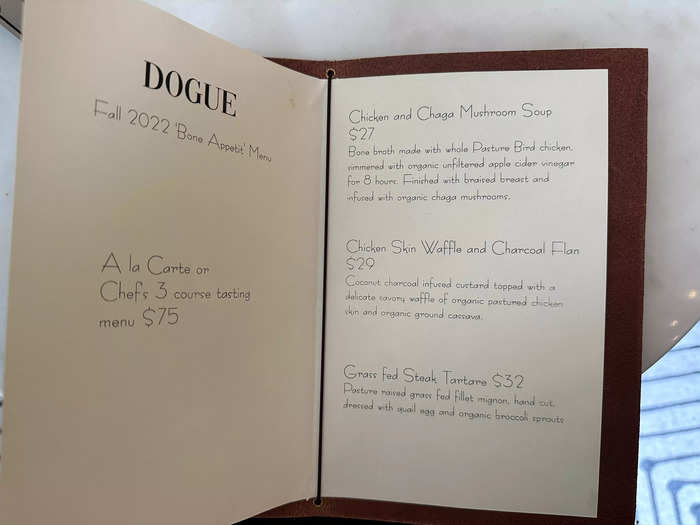 DOGUE
Fall 2022 'Bone Appetit' Menu
A la Carte or
Chefs 3 course tasting
menu $75
Chicken and Chaga Mushroom Soup
$27
Bone broth made with whole Pasture Bird chicken,
simmered with organic unfiltered apple cider vinegar
for 8 hours. Finished with braised breast and
infused with organic chaga mushrooms.
Chicken Skin Waffle and Charcoal Flan
$29
Coconut charcoal infused custard topped with a
delicate savory waffle of organic pastured chicken
skin and organic ground cassava.
Grass fed Steak Tartare $32
Pasture raised grass fed fillet mignon, hand cut,
dressed with quail egg and organic broccoli sprouts